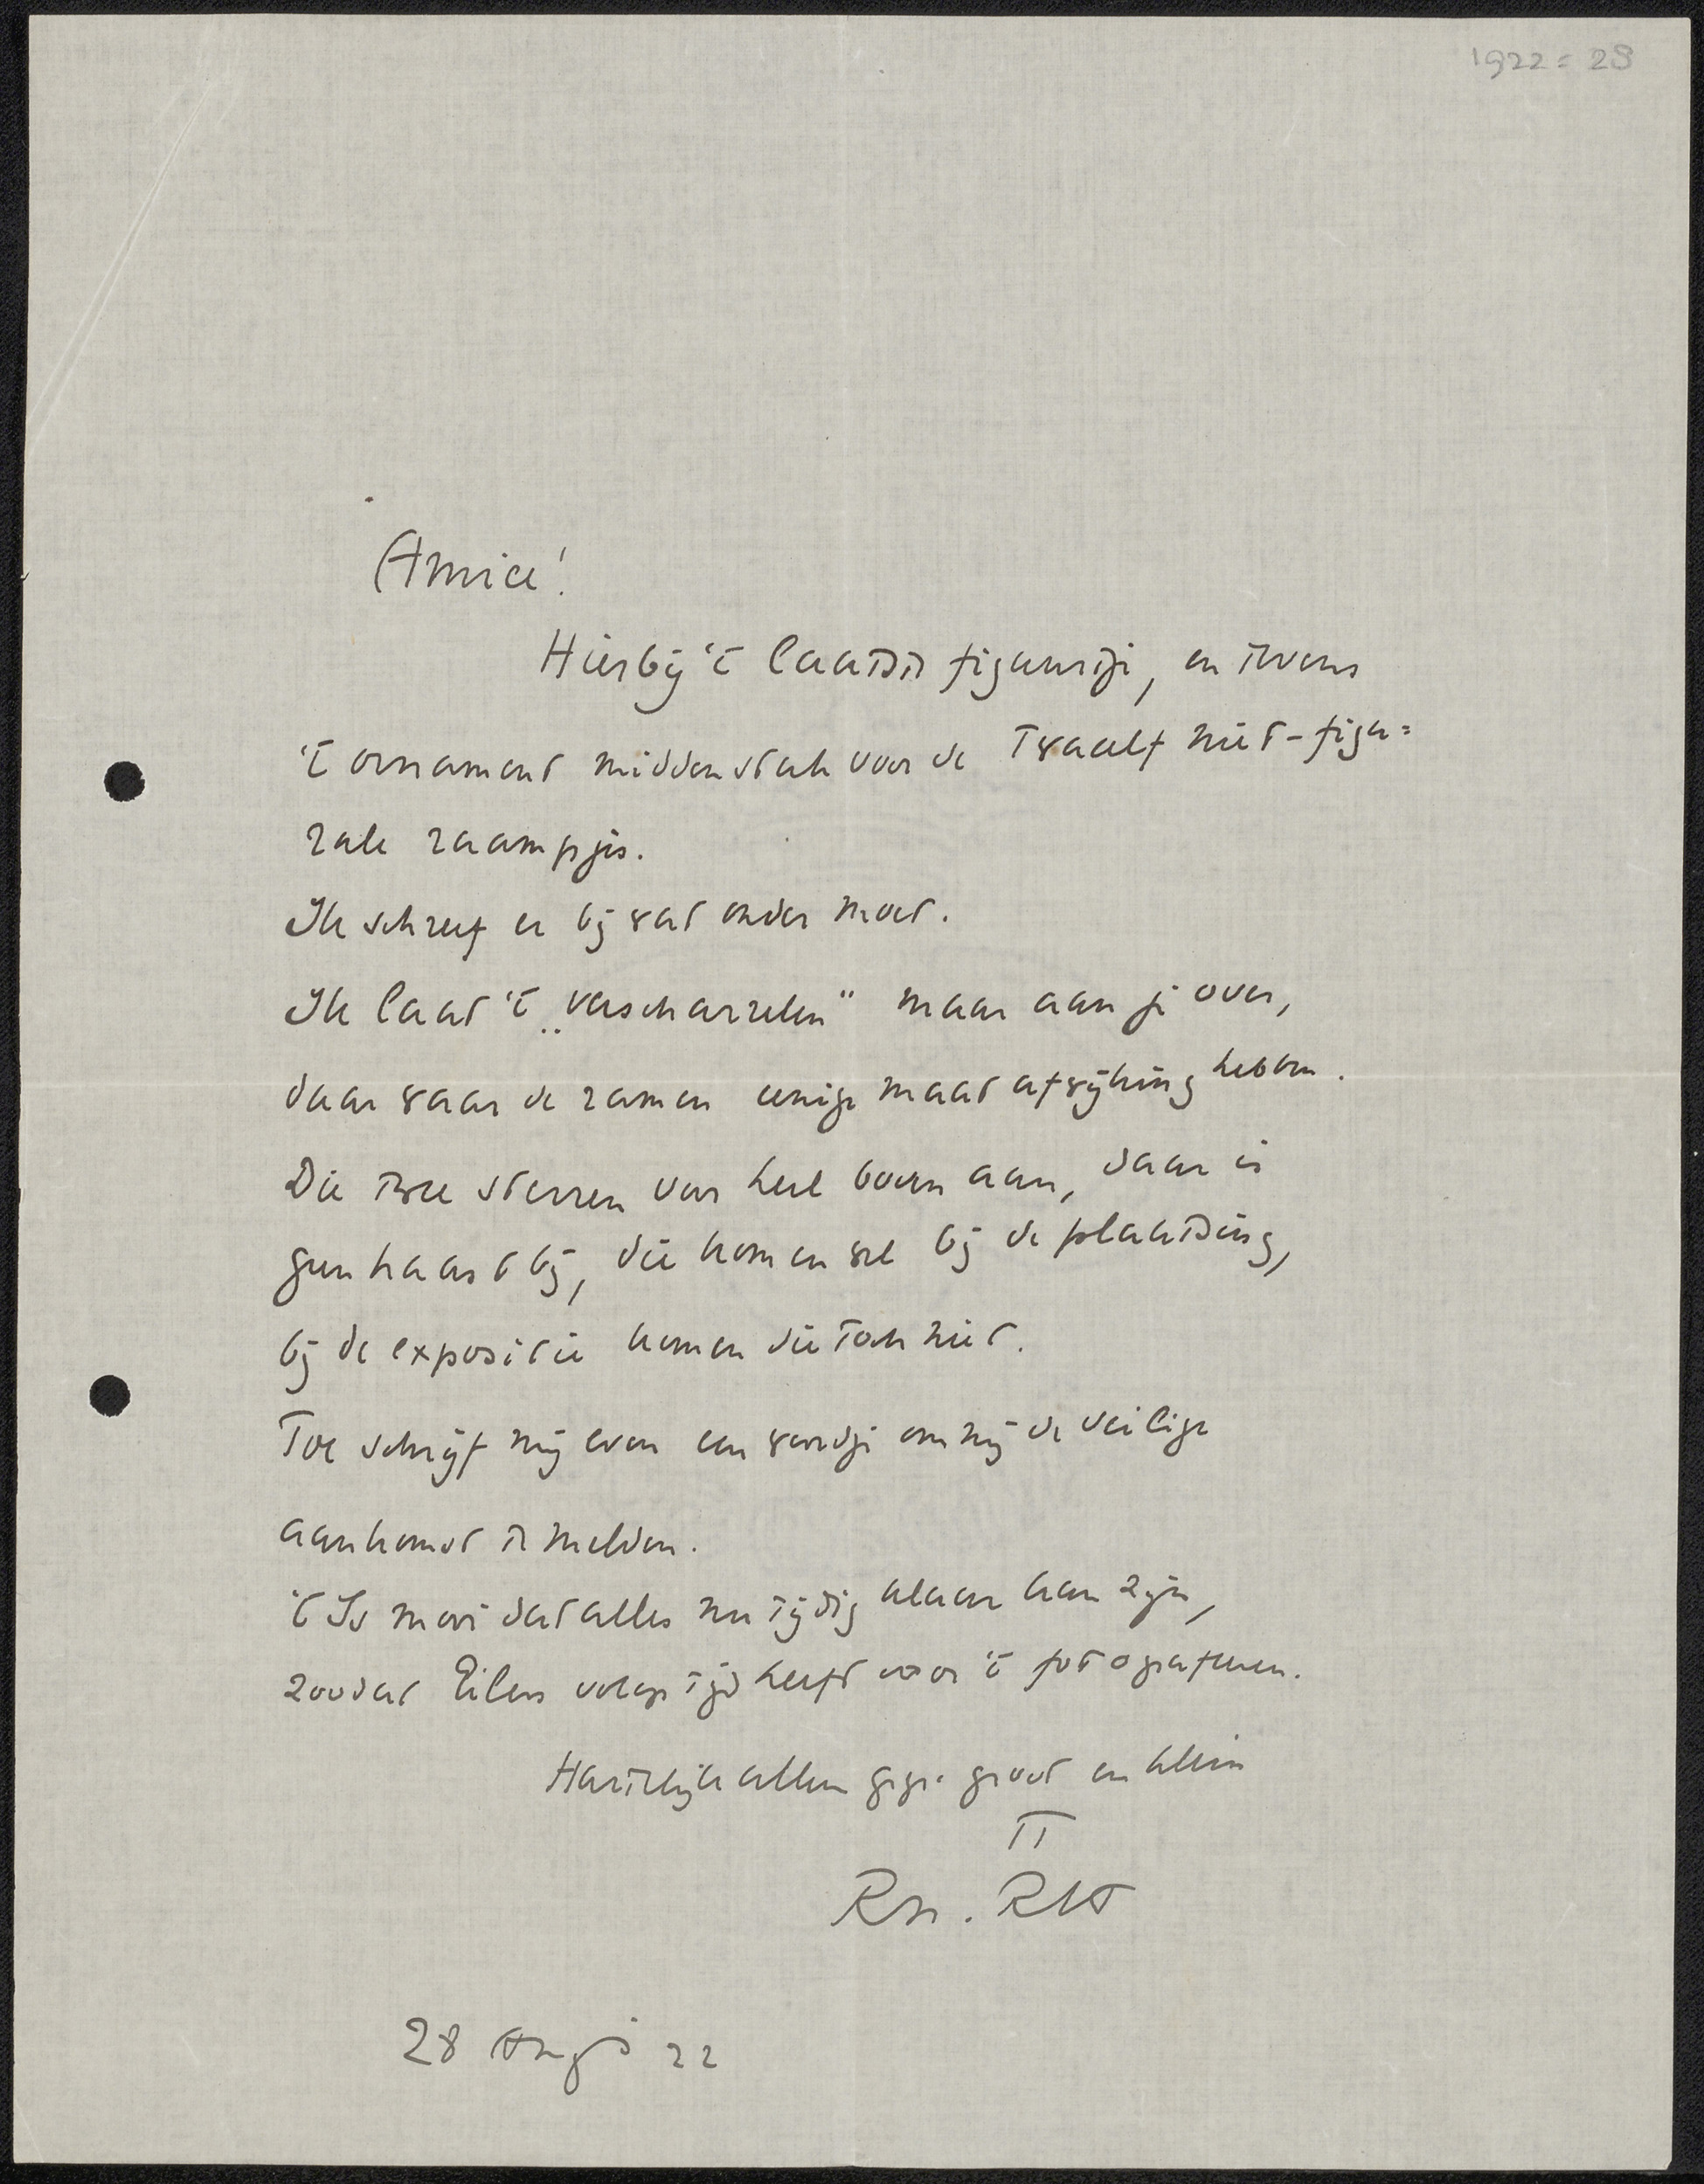 1922 = 28
Amice!
Hierbij 't laatste figuurtje, en tevens
't ornament middenstuk voor de Twaalf niet-figu=
rale raampjes.
Ik schreef er bij wat onder moet.
Ik laat 't „verscharrelen" maar aan je over,
daar waar de ramen eenige maat afwijking hebben.
Die twee sterren voor heel boven aan, daar is
geen haast bij, die komen wel bij de plaatsing,
bij de expositie komen die toch niet.
Toe schrijf mij even een woordje om mij de veilige
aankomst te melden.
't Is mooi dat alles nu tijdig klaar kan zijn,
zoodat Eilers volop tijd heeft voor 't fotografeeren.
Hartelijk allen gegr. groot en klein
tt
Rn. RH
28 Aug 22